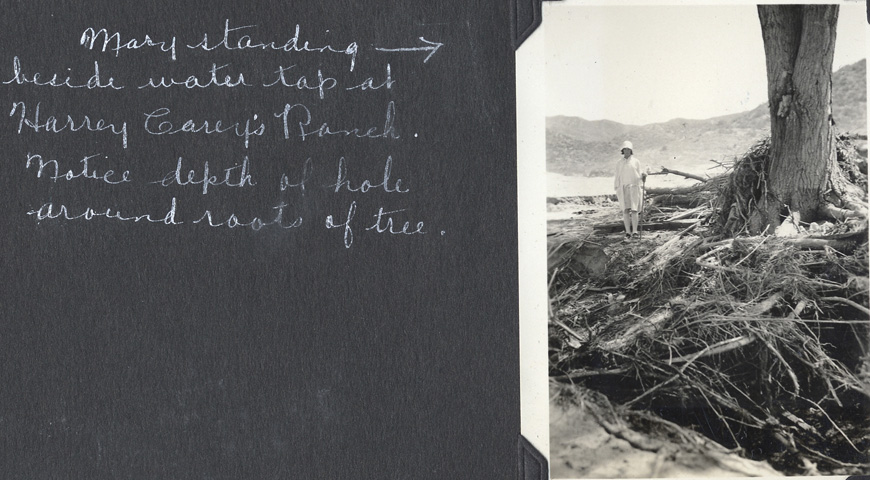 Mary standing →
beside water tap at
Harrey Carey's Ranch.
Notice depth of hole
around roots of tree.